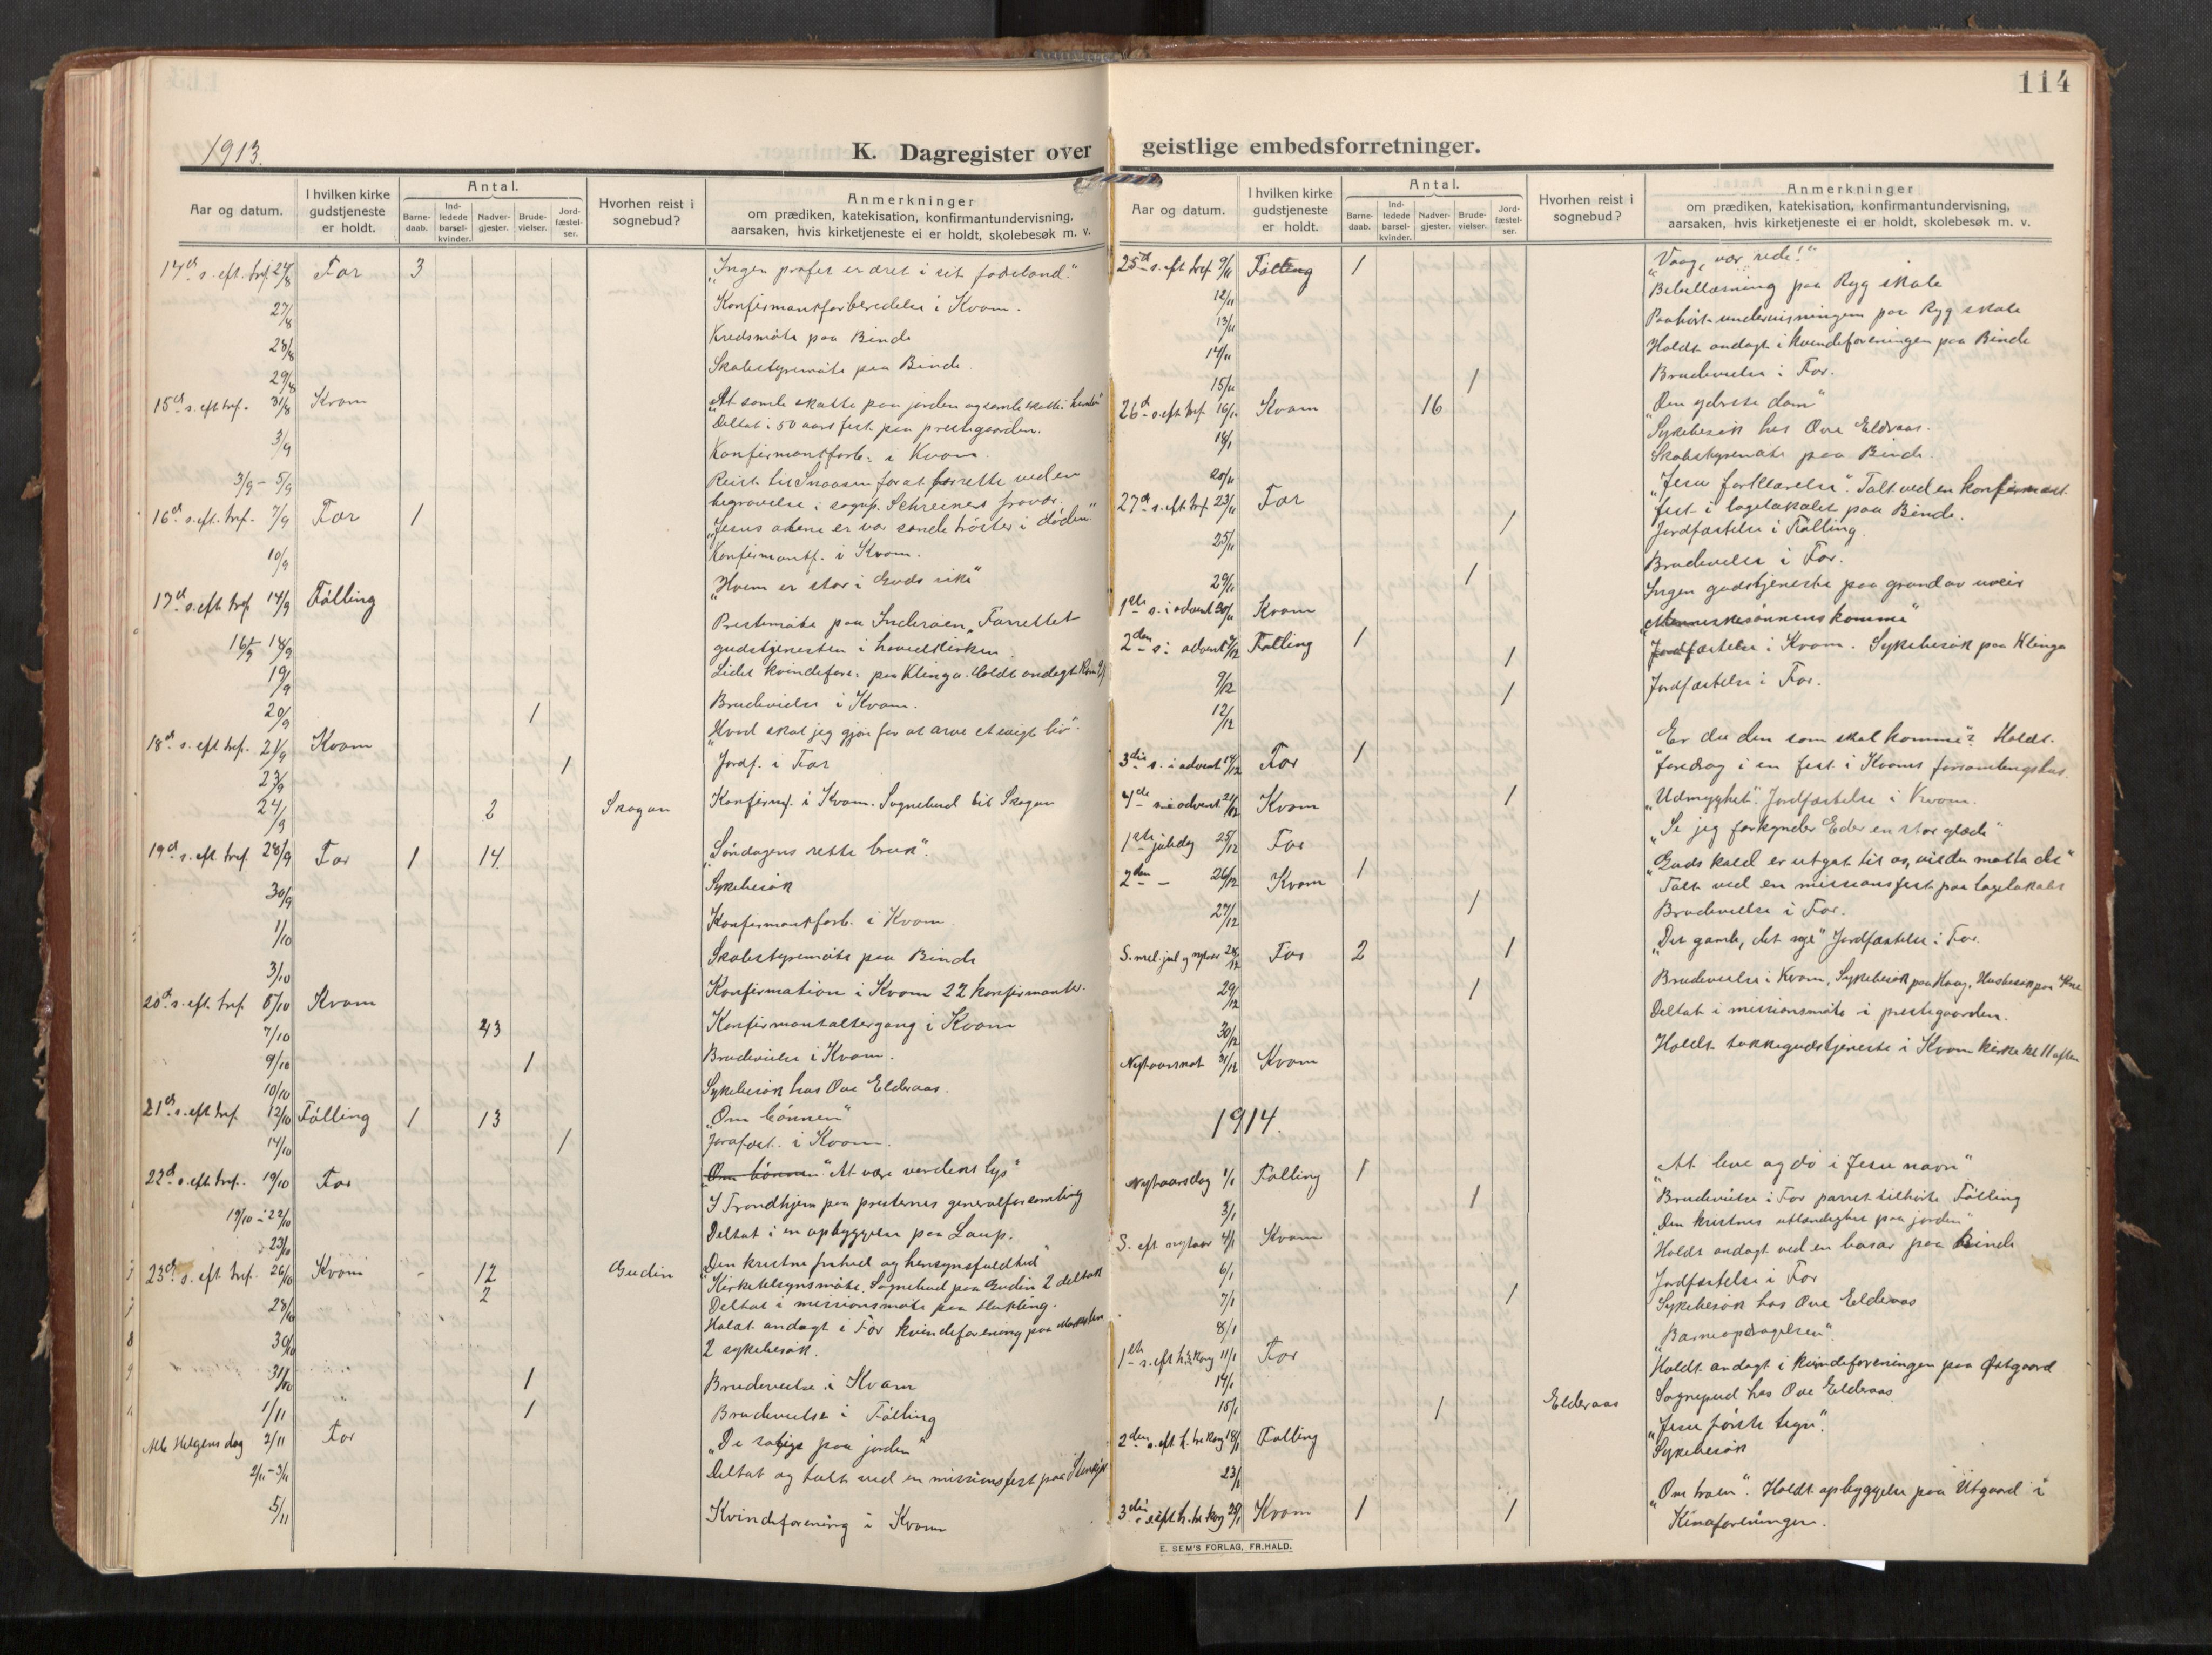 114
1913.
K. Dagregister over geistlige embedsforretninger.
Aar og datum.
I hvilken kirke gudstjeneste er holdt.
Antal.
Barne-daab.
Ind-ledede barsel-kvinder.
Nadver-gjester.
Brude-vielser.
Jord-fæstel-ser.
Hvorhen reist i sognebud?
Anmerkninger
om prædiken, katekisation, konfirmantundervisning,
aarsaken, hvis kirketjeneste ei er holdt, skolebesøk m. v.
14de s. eft. tref. 24/8 For 3 "Ingen profet er æret i sit fødeland."
27/8 Konfirmantforberedelse i Kvam.
28/8 Kredsmøte paa Binde
29/8 Skolestyremøte paa Binde.
15de s. eft tref. 31/8 Kvam "At samle skatte paa jorden og samle skatte i himlen"
Deltat i 50 aars fest paa prestegaarden.
3/9 Konfirmantforb. i Kvam.
3/9 - 5/9 Reist til Snaasen for at forrette ved en
begravelse i sognp. Schreiners fravær.
16de s. eft. tref. 7/9 For 1 "Jesus alene er vor sande trøster i døden."
10/9 Konfirmantf. i Kvam.
17de s. eft. tref. 14/9 Følling "Hvem er stor i Guds rike"
16/9 18/9 Prestemøte paa Inderøen. Forrettet
gudstjenesten i hovedkirken.
19/9 Ledet kvindefore: paa Klinga. Holdt andagt
20/9 1 Brudevielse i Kvam.
18de s. eft. tref. 21/9 Kvam "Hvad skal jeg gjøre for at arve et evigt liv".
23/9 1 Jordf. i For
24/9 2 Skogan Konfirmf. i Kvam. Sognebud til Skogan
19de s. eft. tref. 28/9 For 1 14 "Søndagens rette bruk".
30/9 Sykebesøk
1/10 Konfirmantforb. i Kvam
3/10 Skolestyremøte paa Binde
20de s. eft. tref. 5/10 Kvam Konfirmation i Kvam 22 konfirmanter.
7/10 43 Konfirmantaltergang i Kvam
9/10 1 Brudevielse i Kvam.
10/10 Sykebesøk hos Ove Elderaas.
21de s. eft. tref. 12/10 Følling 1 13 "Om bønnen"
14/10 1 Jordfæst. i Kvam.
22de s. eft. tref. 19/10 For "Om bønnen" "At være verdens lys"
19/10 - 22/10 I Trondhjem paa presternes generalforsamling
23/10 Deltat i en opbyggelse paa Laup.
23de s. eft. tref. 26/10 Kvam - 12 Gudin "Den kristne frihed og hensynsfuldhed"
2 Kirketilsynsmøte. Sognebud paa Gudin 2 deltok
28/10 Deltat i missionsmøte paa Hukling.
30/10 Holdt andagt i For kvindeforening paa
2 sykebesøk.
31/10 1 Brudevielse i Kvam
1/11 1 Brudevielse i Følling
Alle Helgens dag 2/11 For "De salige paa jorden"
2/11 - 3/11 Deltat og talt ved en missionsfest paa Stenkjær
5/11 Kvindeforening i Kvam
Aar og datum.
I hvilken kirke gudstjeneste er holdt.
Antal.
Barne-daab.
Ind-ledede barsel-kvinder.
Nadver-gjester.
Brude-vielser.
Jord-fæstel-ser.
Hvorhen reist i sognebud?
Anmerkninger
om prædiken, katekisation, konfirmantundervisning,
aarsaken, hvis kirketjeneste ei er holdt, skolebesøk m. v.
25de s. eft tref 9/11 Følling 1 "Vaag, vær rede!"
12/11 Bibellæsning paa Ryg skole
13/11 Paahørt undervisningen paa Ryg skole
14/11 Holdt andagt i kvindeforeningen paa Binde
15/11 1 Brudevielse i For.
26de s. eft. tref 16/11 Kvam 16 "Den yderste dom"
18/11 Sykebesøk hos Ove Elderaas.
20/11 Skolestyremøte paa Binde.
27de s. eft. tref 23/11 For "Jesu forklarelse". Talt ved en konfirmant
fest i lagelokalet paa Binde.
25/11 1 Jordfæstelse i Følling.
29/11 1 Brudevielse i For.
1ste s. i advent 30/11 Kvam Ingen gudstjeneste paa grund av uveir
2den s. i advent 7/12 Følling 1 "Menneskesønnens komme"
9/12 1 Jordfæstelse i Kvam. Sykebesøk paa Klinga
12/12 1 Jordfæstelse i For.
3die s. i advent 14/12 For 1 "Er du den som skal komme"? Holdt
foredrag i en fest i Kvams forsamlingshus
4de s. i advent 21/12 Kvam 1 "Udmyghet". Jordfæstelse i Kvam.
1ste juledag 25/12 For "Se jeg forkynder Eder en stor glæde"
2den - 26/12 Kvam 1 "Guds kald er utgat til os, vil du motta det"
Talt ved en missionsfest paa lagelokalet
27/12 1 Brudevielse i For.
S. mel. jul og nytaar 28/12 For 2 1 "Det gamle, det nye" Jordfæstelse i For.
29/12 1 Brudevielse i Kvam, Sykebesøk paa Haug, Husbesøk paa
30/12 Deltat i missionsmøte i prestegaarden.
Nytaarsnat 31/12 Kvam Holdt takkegudstjeneste i Kvam kirke kl 11 aften
1914.
Nytaarsdag 1/1 Følling 1 "At leve og dø i Jesu navn"
3/1 1 Brudevielse i For parret tilhørte Følling
S. eft nytaar 4/1 Kvam "Den kristnes utlændighet paa jorden"
6/1 Holdt andagt ved en basar paa Binde
7/1 1 Jordfæstelse i For
8/1 Sykebesøk hos Ove Elderaas
1ste s. eft h. 3 kong 11/1 For "Barneopdragelsen".
14/1 Holdt andagt i kvindeforeningen paa Østgaard
15/1 1 Elderaas Sognebud hos Ove Elderaas
2den s. eft. h. tre kong 18/1 Følling "Jesu første tegn".
23/1 Sykebesøk
3die s. eft. h. tre kong 25/1 Kvam 1 1 "Om troen". Holdt opbyggelse paa Utgaard i
Kinaforeningen.
E. SEM'S FORLAG, FR.HALD.